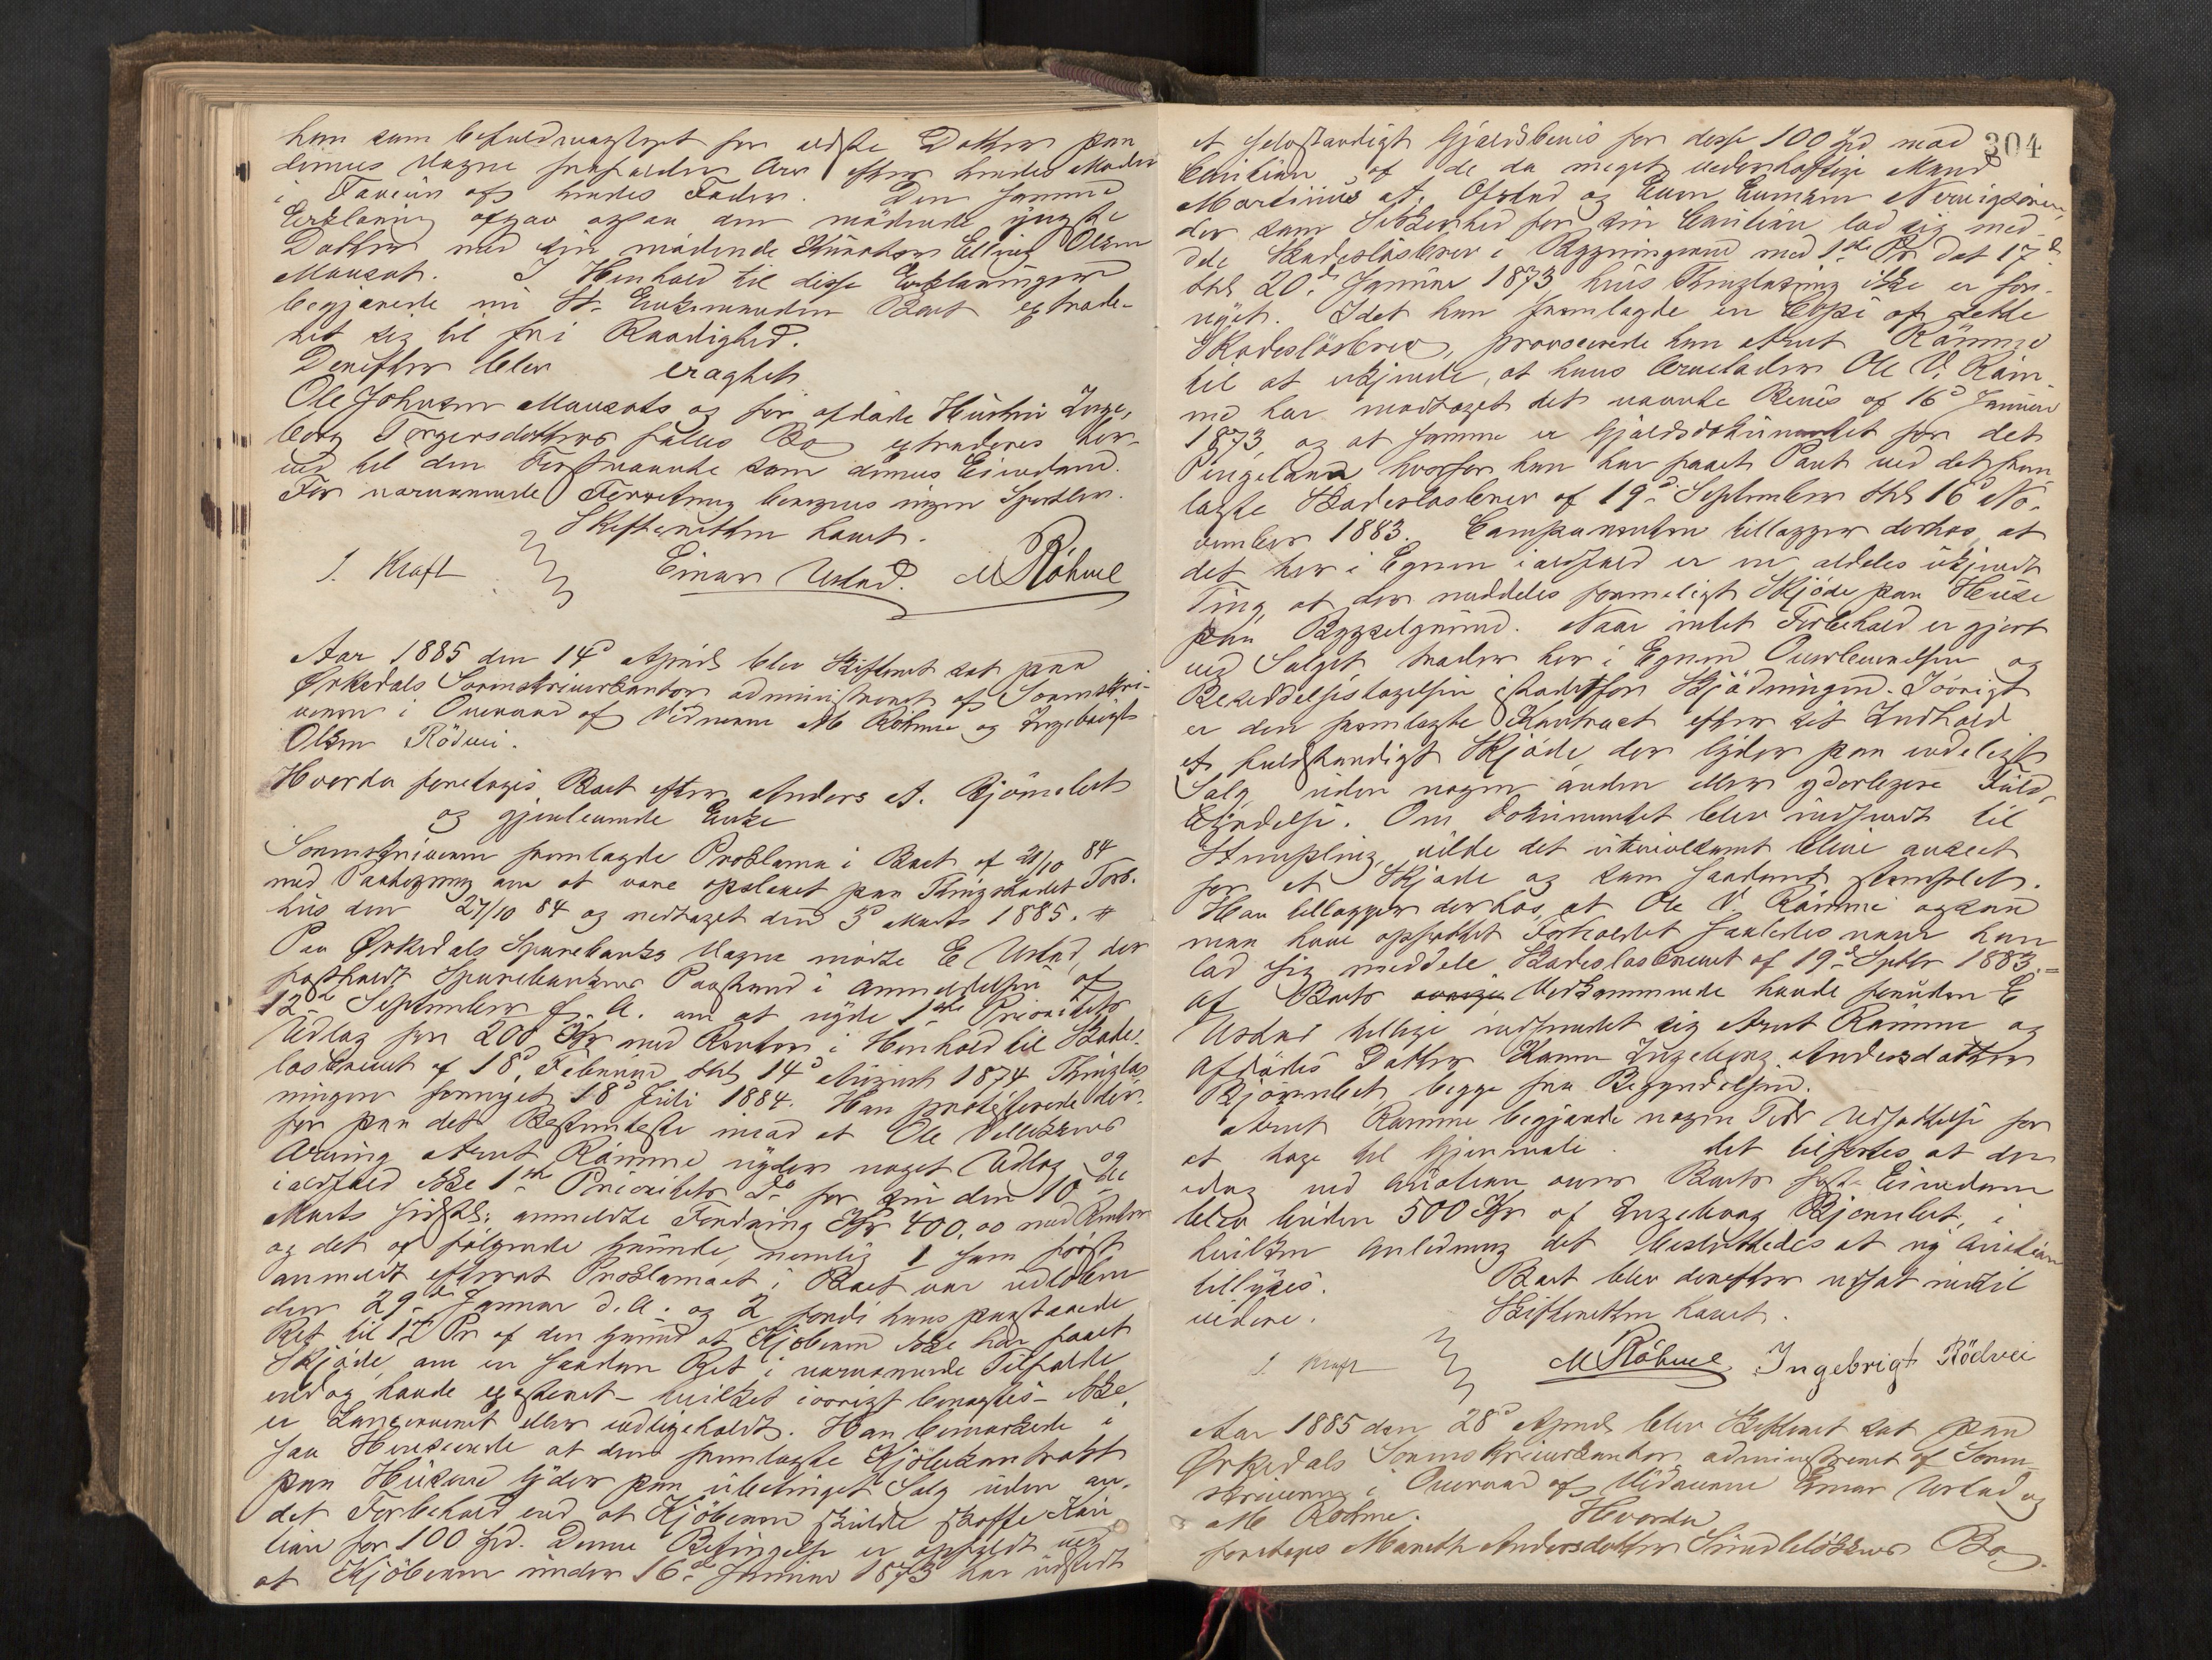 han som befuldmægtiget for ældste Datter paa
dennes Vegne frafalder Arv efter hendes Moder
i Faveur af hendes Fader. Den samme
Erklæring afgav ogsaa den mødende yngste
Datter med sin mødende Kurator Elling Olsen
Mausæt. I Henhold til disse Erklæringer
begjærede nu St. Enkemanden Boet extrade-
ret sig til fri Raadighed.
Derefter blev eragtet
Ole Johnsen Mausæts og før afdøde Hustru Inge-
borg Torgersdatters fælles Bo extraderes her-
ved til den Førstnævnte som dennes Eiendom.
For nærværende Forretning beregnes ingen Sportler.
Skifteretten hævet.
I. Kraft Einar Ustad. M Røhme
Aar 1885 den 14d April blev Skifteret sat paa
Ørkedals Sorenskriverkontor administreret af Sorenskri-
veren i Overvær af Vidnerne M Röhme og Ingebrigt
Olsen Rödvei.
Hvorda foretoges Boet efter Anders A. Bjørnbet
og gjenlevende Enke
Sorenskriveren fremlagde Proklama i Boet af 21/10 84
med Paategning om at være opslaaet paa Thingstedet Forb.
hus den 27/10 84 og nedtaget den 3d Marts 1885. #
Paa Ørkedals Sparebanks Vegne mødte E Ustad, der
fastholdt Sparebankens Paastand i Anmeldelsen af
12te September f. A. om at nyde 1ste Prioritets
Udlæg for 200 Kr med Renter i Henhold til Skades-
løsbrevet af 18d Februar thl 14d August 1874 Thinglæs
ningen fornyet 18d Juli 1884. Han protesterede der-
for paa det Bestemteste imod at Ole Vellikens
Arving Arnt Rømme nyder noget Udlæg og
ialfald ikke 1ste Prioritets Do for sin den 10de
Marts sidstl. anmeldte Fordring Kr 400,00 med Renter
og det af følgende Grunde, nemlig 1 som først
anmeldt efterat Proklamaet i Boet var udløbet
den 29de Januar d. A. og 2 fordi hans paastaaede
Ret til 1ste Pr af den Grund at Kjøberen ikke har faaet
Skjøde, om en saadan Ret i nærværende Tilfælde
endog havde existeret - hvilket iøvrigt benægtes - ikke
er konserveret eller vedligeholdt. Han bemærkede i
saa Henseende at den fremlagte Kjøbekontrakt
paa Husene lyder paa ubetinget Salg uden an-
det Forbehold end at Kjøberen skulde skaffe Kau
tion for 100 Spd. Denne Betingelse er opfyldt ved
at Kjøberen under 16de Januar 1873 har udstedt
304
et selvstændigt Gjældsbevis for disse 100 Spd med
Caution af de da meget vederhæftige Mænd
Martinus A. Ofstad og Even Evensen
der som Sikkerhed for sin Caution lod sig med-
dele Skadesløsbrev i Bygningerne med 1ste Pr dat 17d
thl 20d Januar 1873, hvis Thinglæsning ikke er for-
nyet. Idet han fremlagde en Copi af dette
Skadesløsbrev, provocerede han Arnt Rømme
til at erkjende, at hans Arvelader Ole V. Røm-
me har modtaget det nævnte Bevis af 16d Januar
1873, og at samme er Gjældsdokumentet for det
Pengelaan hvorfor han har faaet Pant ved det frem
lagte Skadesløsbrev af 19d September thl 16d No-
vember 1883. Comparenten tillægger derhos, at
det her i Egnen ialfald er en aldeles ukjendt
Ting at der meddeles formeligt Skjøde paa Huse
paa Bygselgrund. Naar intet Forbehold er gjort
ved Salget, træder her i Egnen Overleverelsen og
Besiddelsestagelsen istedetfor Skjødningen. Iøvrigt
er den fremlagte Kontract efter sit Indhold
et fuldstændigt Skjøde, der lyder paa endeligt
Salg uden nogen anden eller yderligere Fuld-
byrdelse. Om Dokumentet blev indsendt til
Stempling vilde det utvivlsomt blive anseet
for et Skjøde og som saadant stemplet.
Han tillægger derhos, at Ole V. Rømme ogsaa
maa have opfattet Forholdet saaledes naar han
lod sig meddele Skadesløsbrevet af 19d Septbr 1883. =
Af Boets Vedkommende havde foruden E
Ustad tillige indfundet sig Arnt Rømme og
Afdødes Datter Karen Ingeborg Andersdatter
Bjørnbet begge fra Begyndelsen.
Arnt Rømme begjærede nogen Tids Udsættelse for
at tage til Gjenmæle. Det tilførtes at der
idag ved Auction over Boets faste Eiendom
blev buden 500 Kr af Ingeborg Bjørnbet, i
hvilken Anledning det besluttedes at ny Auktion
tillyses. Boet blev derefter udsat indtil
videre. Skifteretten hævet.
I. Kraft M Røhme Ingebrigt Rödvei
Aar 1885 den 28d April blev Skifteret sat paa
Ørkedals Sorenskriverkontor administreret af Soren-
skriveren i Overvær af Vidnerne Einar Ustad og
M Røhme. Hvorda
foretoges Mareth Andersdatter Bo.